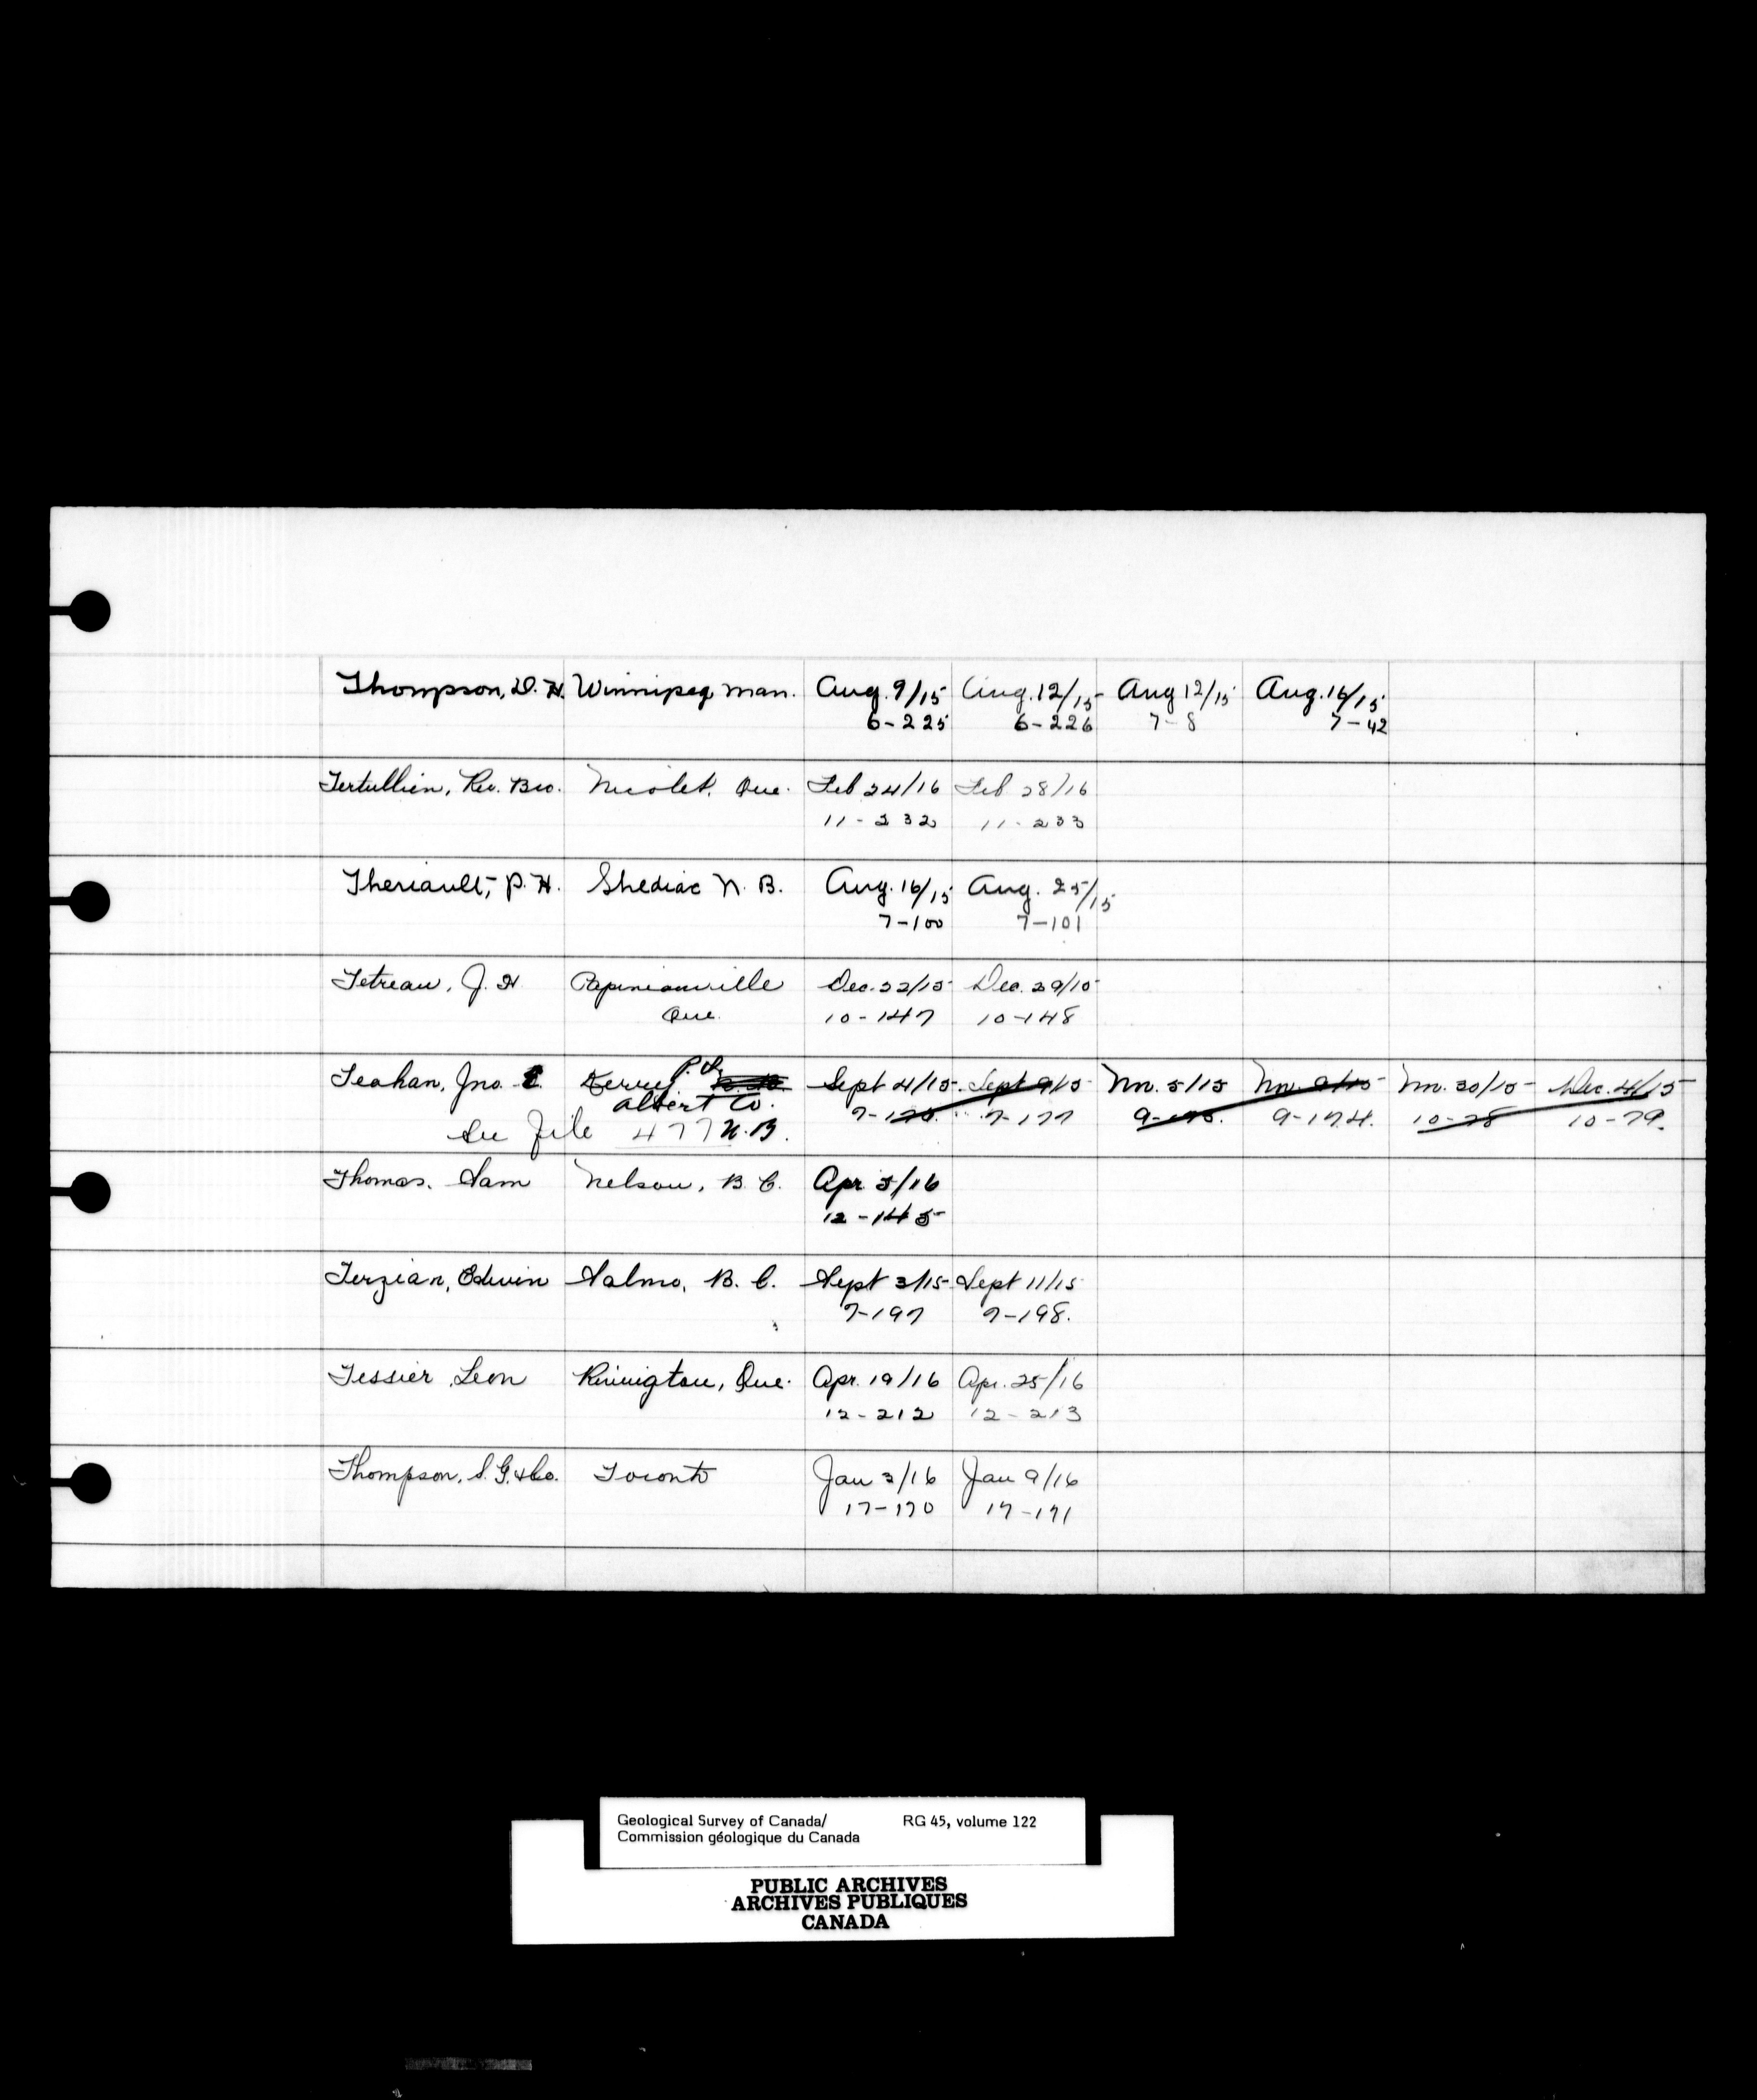 Thompson, D. H. Winnipeg Man. Aug. 9/15 Aug. 12/15 Aug 12/15 Aug. 16/15
6-225 6-226 7-8 7-42
Tertullien, Rev. Bro. Nicolet, Que. Feb 24/16 Feb 28/16
11-232 11-233
Theriault, P. H. Shediac N. B. Aug. 16/15 Aug. 25/15
7-100 7-101
Tetreau, J. H. Papineauville Dec. 22/15 Dec. 29/15
Que. 10-147 10-148
Teahan, Jno. Derry Sept 4/15 Sept 9/15 Nov. 5/15 Nov. 9/15 Nov. 30/15 Dec. 4/15
Albert Co. 7-177 9-174. 10-79.
See File 477 N.B.
Thomas, Sam Nelson, B. C. Apr. 5/16
12-145
Terzian, Edwin Salmo, B. C. Sept 3/15 Sept 11/15
7-197 7-198.
Tessier, Leon Que. Apr. 19/16 Apr. 25/16
12-212 12-213
Thompson, S. G. & Co. Toronto Jan 3/16 Jan 9/16
17-170 17-171
Geological Survey of Canada/ RG 45, volume 122
Commission géologique du Canada
PUBLIC ARCHIVES
ARCHIVES PUBLIQUES
CANADA